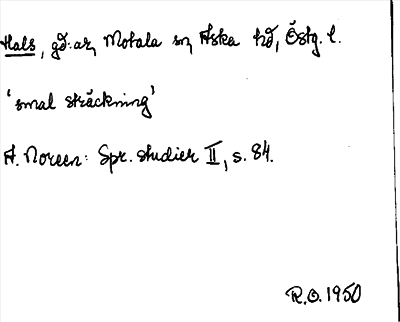 Hals, gd:ar, Motala sn, Aska hd, Östg. l.
'smal sträckning'
A. Noreen: Spr. studier II, s. 84.
R.O. 1950